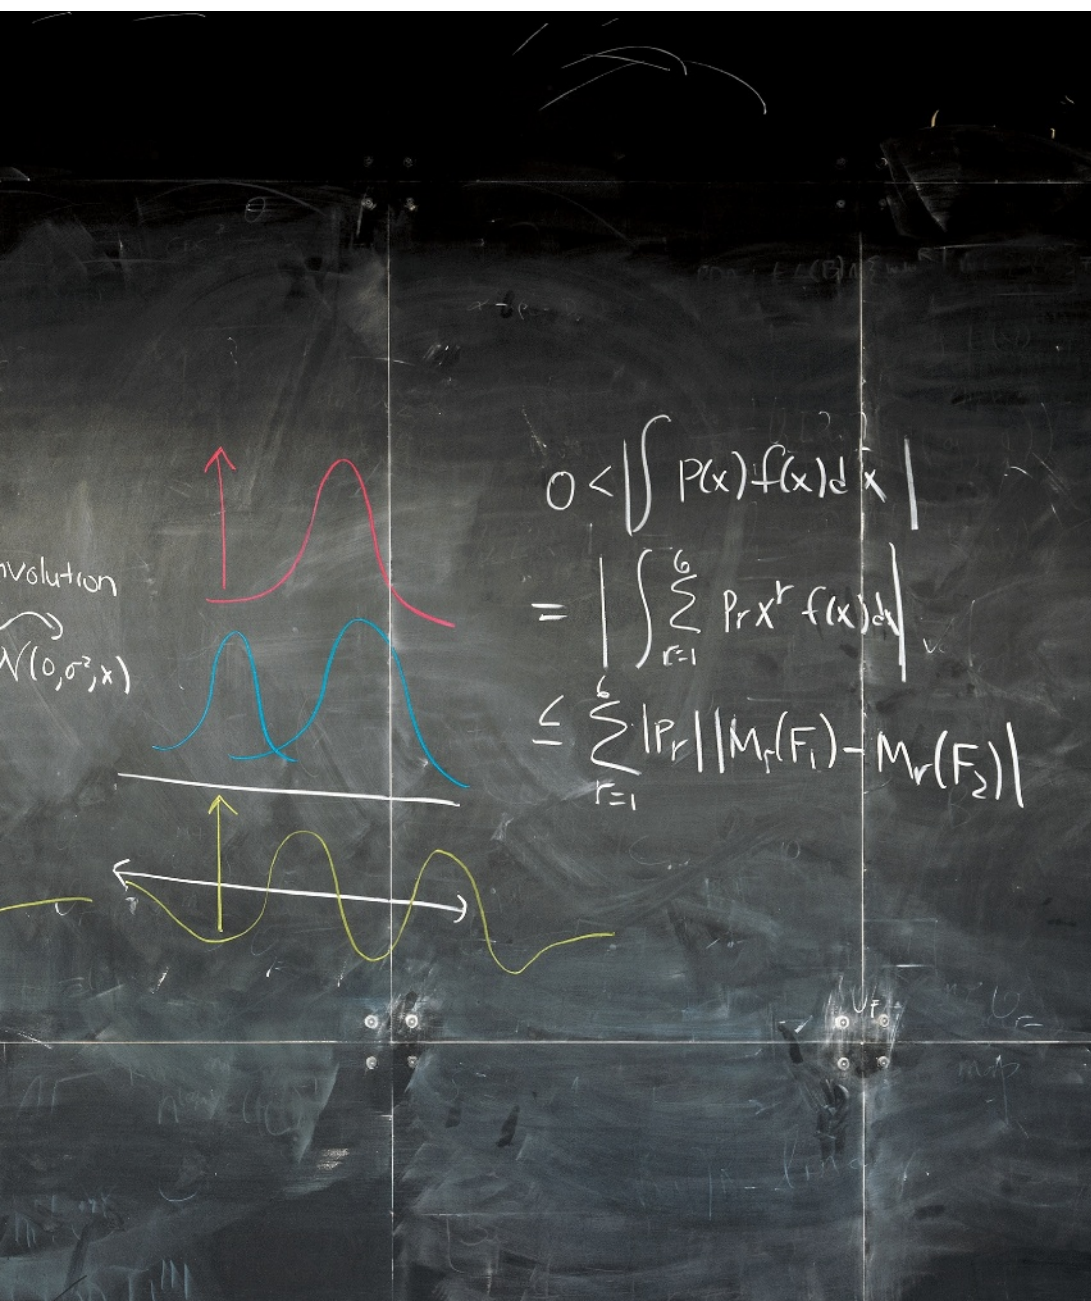 nvolution
N(0,σ²,x)
0 < |∫ P(x) f(x) dx|
= |∫ Σ_{r=1}^{6} P_r x^r f(x) dx|
≤ Σ_{r=1}^{6} |P_r| |M_r(F₁) - M_r(F₂)|